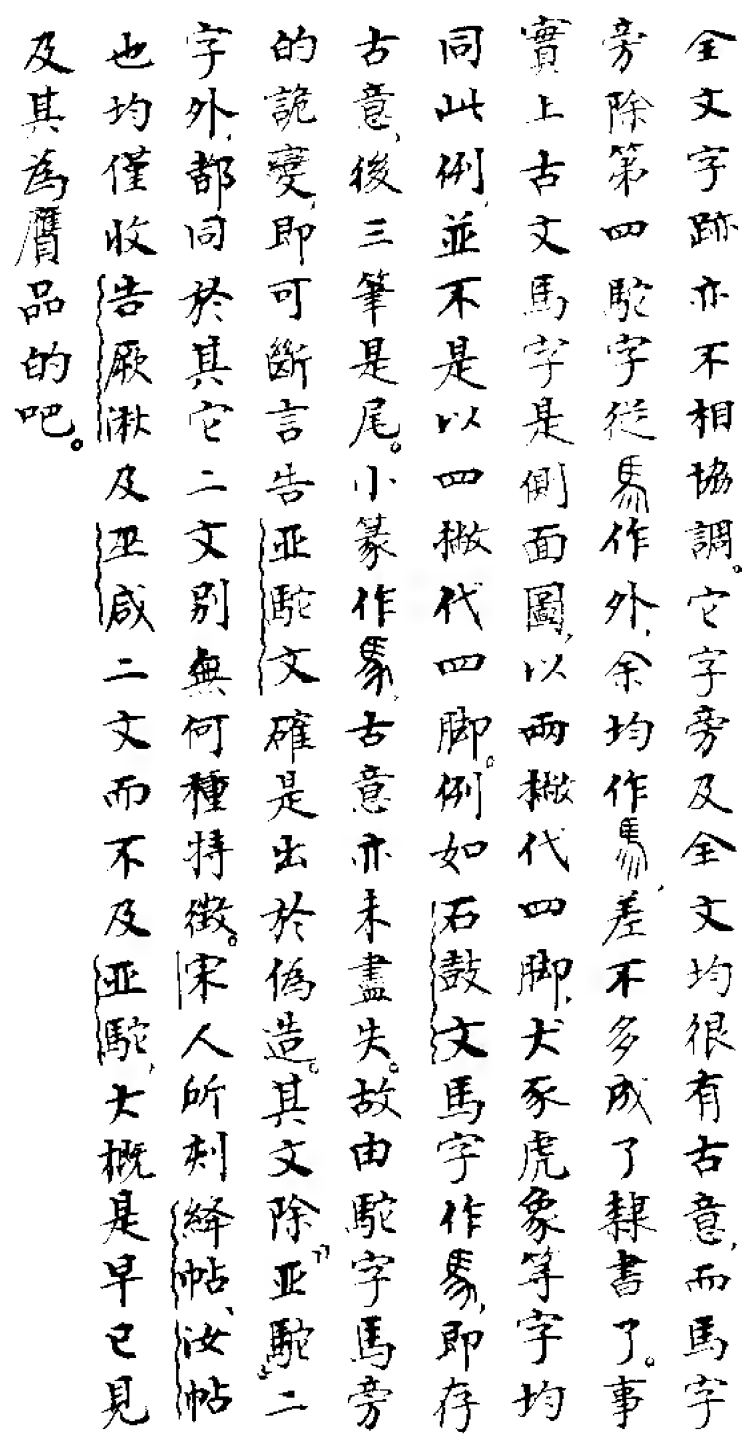 全文字跡亦不相協調。它字旁及全文均很有古意，而馬字
旁除第四駝字從馬作外，余均作馬，差不多成了隸書了。事
實上古文馬字是側面圖，以兩撇代四脚，犬豕虎象等字均
同此例，並不是以四撇代四脚。例如石鼓文馬字作馬，即存
古意，後三筆是尾。小篆作馬，古意亦未盡失。故由駝字馬旁
的詭變，即可斷言告亚駝文確是出於偽造。其文除“亚駝”二
字外，都同於其它二文別無何種特徵。宋人所刻絳帖、汝帖
也均僅收告厥湫及巫咸二文而不及亚駝，大概是早已見
及其為贋品的吧。